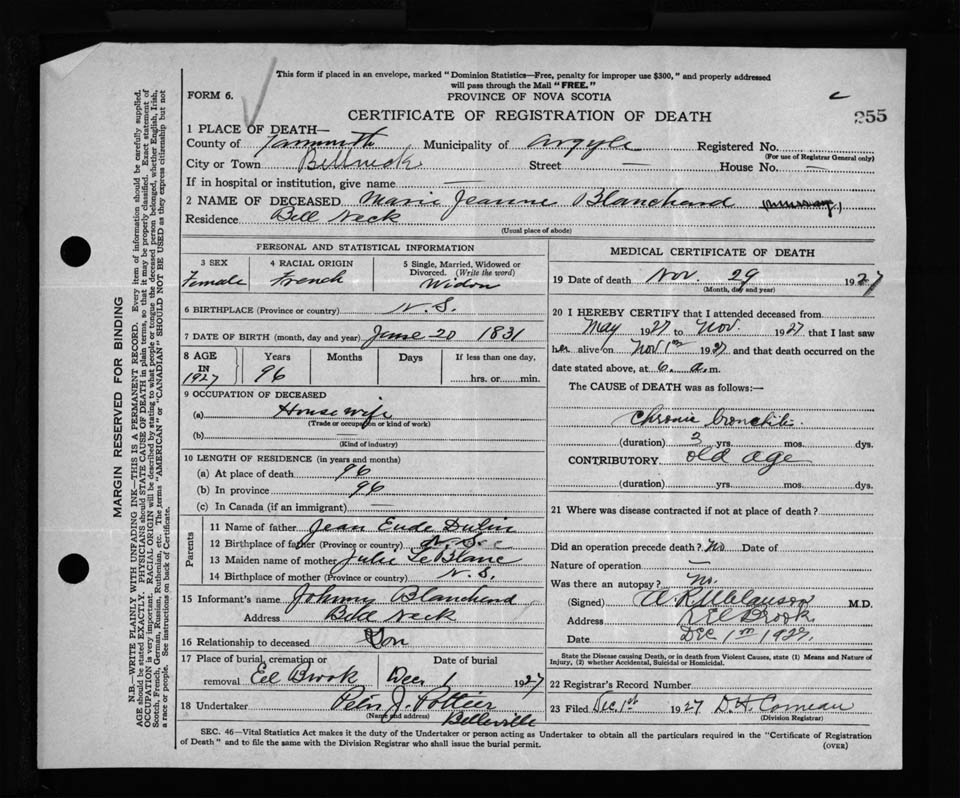 This form if placed in an envelope, marked "Dominion Statistics—Free, penalty for improper use $300," and properly addressed
will pass through the Mail "FREE."
FORM 6. PROVINCE OF NOVA SCOTIA
CERTIFICATE OF REGISTRATION OF DEATH 255
1 PLACE OF DEATH—
County of Yarmouth Municipality of Argyle Registered No.
(For use of Registrar General only)
City or Town Bellneck Street — House No. —
If in hospital or institution, give name —
2 NAME OF DECEASED Marie Jeanne Blanchard
Residence Bell Neck
(Usual place of abode)
PERSONAL AND STATISTICAL INFORMATION
3 SEX 4 RACIAL ORIGIN 5 Single, Married, Widowed or Divorced. (Write the word)
Female French Widow
6 BIRTHPLACE (Province or country) N.S.
7 DATE OF BIRTH (month, day and year) June 20 1831
8 AGE IN 1927 Years Months Days If less than one day,
96 hrs. or min.
9 OCCUPATION OF DECEASED
(a) Housewife
(Trade or occupation or kind of work)
(b) —
(Kind of industry)
10 LENGTH OF RESIDENCE (in years and months)
(a) At place of death 96
(b) In province 96
(c) In Canada (if an immigrant) —
Parents
11 Name of father Jean Eude
12 Birthplace of father (Province or country)
13 Maiden name of mother Julie LeBlanc
14 Birthplace of mother (Province or country) N.S.
15 Informant's name Johnny Blanchard
Address Bell Neck
16 Relationship to deceased Son
17 Place of burial, cremation or removal Date of burial
Eel Brook Dec 1 1927
18 Undertaker Peter J. Pottier
(Name and address) Belleville
MEDICAL CERTIFICATE OF DEATH
19 Date of death Nov 29 1927
(Month, day and year)
20 I HEREBY CERTIFY that I attended deceased from
May 1927 to Nov. 1927 that I last saw
her alive on Nov 1st 1927 and that death occurred on the
date stated above, at 6 a.m.
The CAUSE of DEATH was as follows:—
Chronic bronchitis
(duration) yrs. mos. dys.
CONTRIBUTORY old age
(duration) yrs. mos. dys.
21 Where was disease contracted if not at place of death?
Did an operation precede death? No Date of
Nature of operation —
Was there an autopsy? No.
(Signed) M.D.
Address Eel Brook
Date Dec 1st 1927.
State the Disease causing Death, or in death from Violent Causes, state (1) Means and Nature of
Injury, (2) whether Accidental, Suicidal or Homicidal.
22 Registrar's Record Number
23 Filed Dec. 1st 1927 D. H. Comeau
(Division Registrar)
SEC. 46—Vital Statistics Act makes it the duty of the Undertaker or person acting as Undertaker to obtain all the particulars required in the "Certificate of Registration
of Death" and to file the same with the Division Registrar who shall issue the burial permit. (OVER)
MARGIN RESERVED FOR BINDING
N.B.—WRITE PLAINLY WITH UNFADING INK—THIS IS A PERMANENT RECORD. Every item of information should be carefully supplied.
AGE should be stated EXACTLY. PHYSICIANS should STATE CAUSE OF DEATH in plain terms, so that it may be properly classified. Exact statement of
OCCUPATION is very important. RACIAL ORIGIN will be described by stating to what people or tongue the deceased person belonged, whether English, Irish,
Scotch, French, German, Russian, Ruthenian, etc. The terms "AMERICAN" or "CANADIAN" SHOULD NOT BE USED as they express citizenship but not
a race or people. See instructions on back of Certificate.